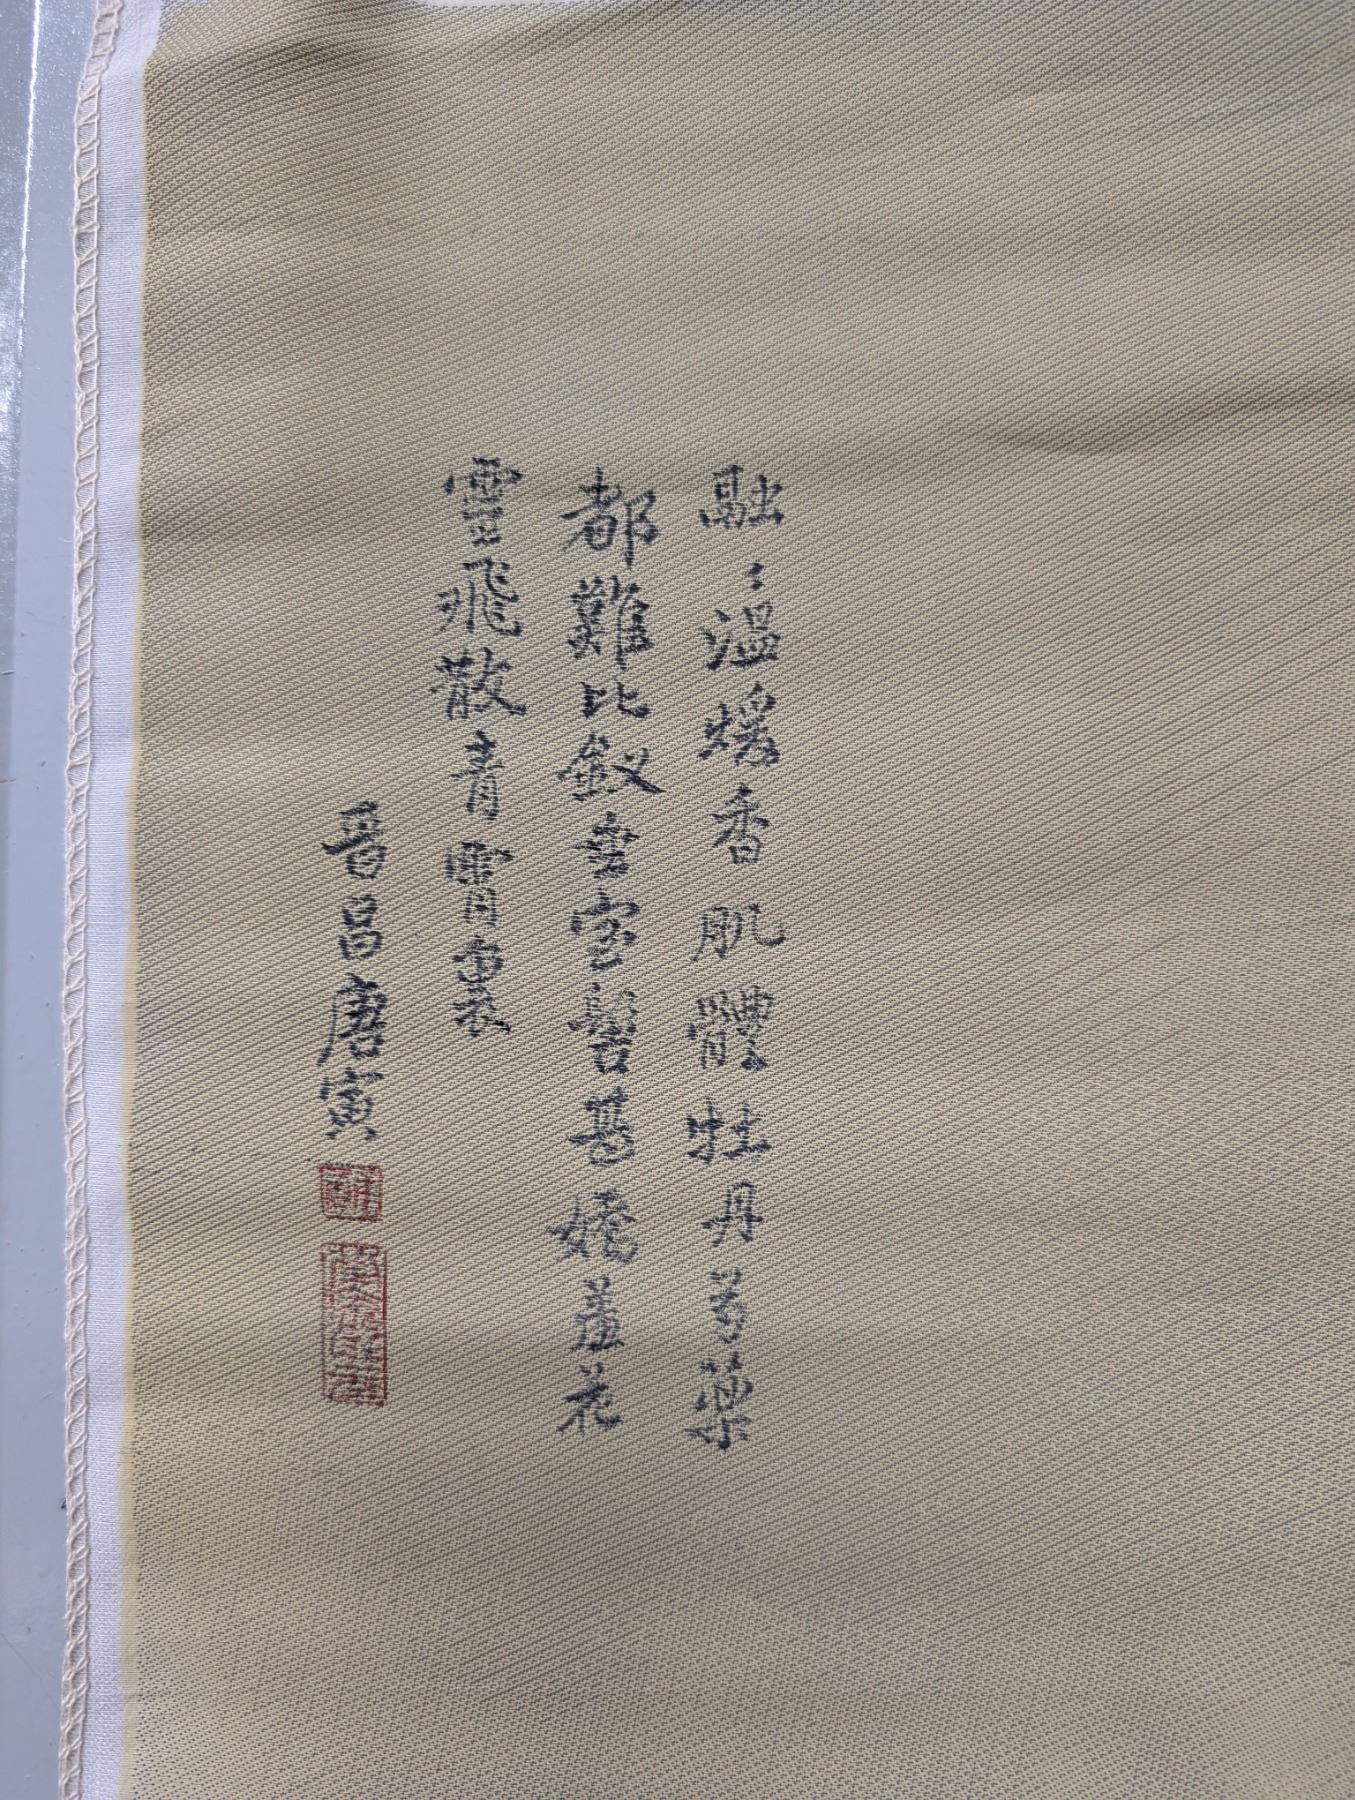 融〻溫煖香肌體牡丹芍藥
都難比釵垂寶髻甚嬌羞花
雲飛散青霄裏
晉昌唐寅